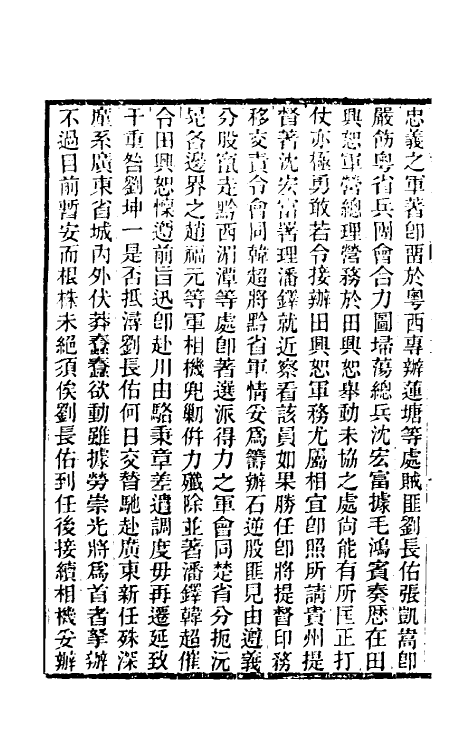 忠義之軍著卽畱於粵西專辦蓮塘等處賊匪劉長佑張凱嵩卽
嚴飭粵省兵團會合力圖埽蕩總兵沈宏富據毛鴻賓奏歴在田
興恕軍營總理營務於田興恕舉動未協之處尙能有所匡正打
仗亦極勇敢若令接辦田興恕軍務尤屬相宜卽照所請貴州提
督著沈宏富署理潘鐸就近察看該員如果勝任卽將提督印務
移交責令會同韓超將黔省軍情妥爲籌辦石逆股匪見由遵義
分股竄走黔西湄潭等處卽著選派得力之軍會同楚省分扼沅
晃各邊界之趙福元等軍相機兜勦倂力殲除並著潘鐸韓超催
令田興恕懍遵前旨迅卽赴川由駱秉章差遣調度毋再遷延致
干重咎劉坤一是否抵潯劉長佑何日交替馳赴廣東新任殊深
廑系廣東省城內外伏莽蠢蠢欲動雖據勞崇光將爲首者拏辦
不過目前暫安而根株未絕須俟劉長佑到任後接續相機妥辦